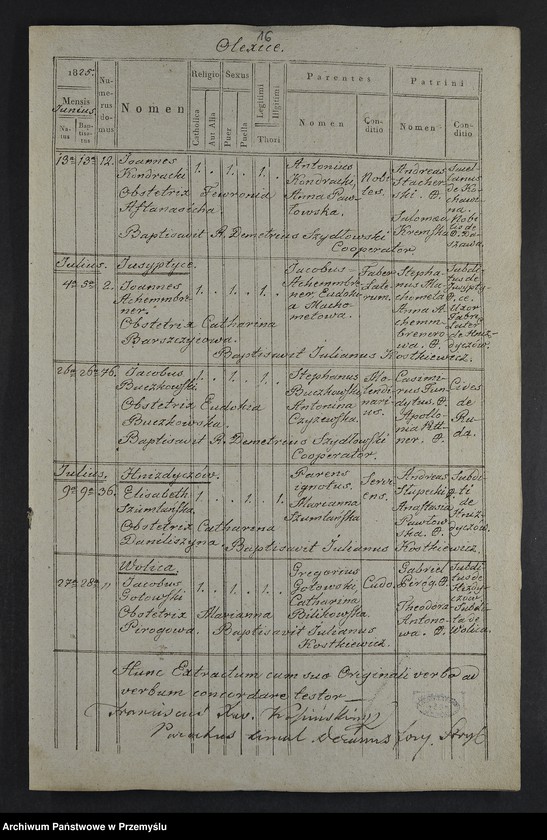 16
Olexice.
1825.
Mensis
Iunius.
Na-
tus
Bap-
tisatus
Nu-
me-
rus
do-
mus
Nomen
Religio
Catholica
Aut Alia
Sexus
Puer
Puella
Legitimi
Illegitimi
Thori
Parentes
Nomen
Con-
ditio
Patrini
Nomen
Con-
ditio
13a 13a 12.
Joannes
Kondracki
Obstetrix Fewronia
Aftanasicha
Baptisavit R. Demetrius Szydłowski
Cooperator
1. 1. 1.
Antonius
Kondracki,
Anna Paw-
łowska.
Nobi-
les.
Andreas
Stacher-
ski.
Salomea
Kremska
Julius. Jusyptyce.
4a 5a 2.
Joannes
Achemmbre-
ner.
Obstetrix Catharina
Barszczycowa.
Baptisavit Julianus Kostkiewicz.
1. 1. 1.
Jacobus
Achemmbre-
ner, Eudoki-
a Macho-
metowa.
Faber
Stepha-
nus Ma-
chometa
Anna A-
chemm-
brenero-
wa.
Subdi-
tus de
Jusypty-
ce.
Uxor
Fabri
26a 26a 76.
Jacobus
Buczkowski.
Obstetrix Eudokia
Buczkowska.
Baptisavit R. Demetrius Szydłowski
Cooperator.
1. 1. 1.
Stephanus
Buczkowski,
Antonina
Czyżewska.
Mo-
lendi-
nari-
us.
Casimi-
rus
Apollo-
nia
ner.
Cives
de
Ru-
da.
Julius. Hnizdyczów.
9a 9a 36.
Elisabeth
Szumlańska
Obstetrix Catharina
Daniliszyna. Baptisavit Julianus Kostkiewicz.
1. 1. 1.
Parens
ignotus.
Marianna
Szumlańska
Servi-
ens.
Andreas
Słupecki
Anastasia
Pawłow-
ska.
Subdi-
ti
de
Hniz-
dyczów.
Wolica.
27a 28a "
Jacobus
Gotowski
Obstetrix Marianna
Pirogowa. Baptisavit Julianus
Kostkiewicz.
1. 1. 1.
Gregorius
Gotowski,
Catharina
Bilikowska.
Gabriel
Pirog.
Theodora
Antono-
wa.
Subdi-
tus de
Subdi-
ta de
Wolica.
Hunc Extractum cum suo Originali verbo ad
verbum concordare testor
Franciscus Xav.
Parochus simul Decanus
Archiwum Państwowe w Przemyślu